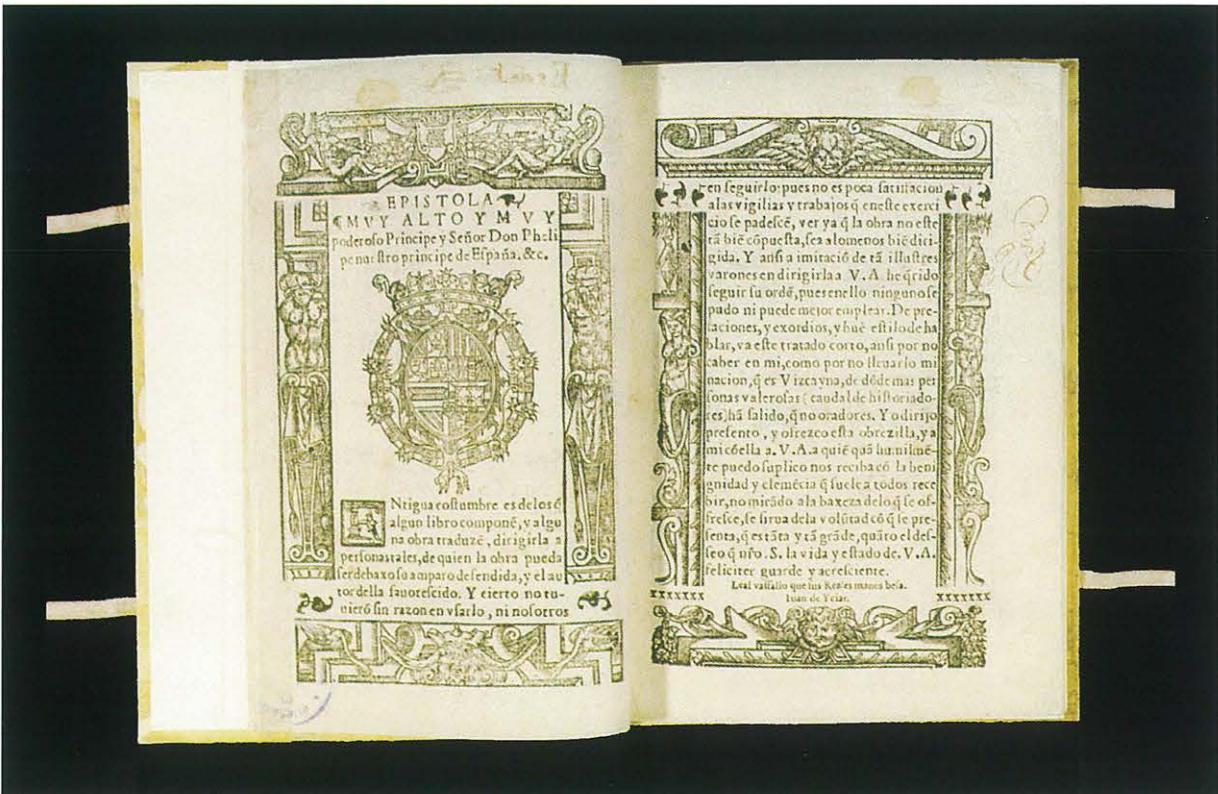 EPISTOLA
MVY ALTO Y MVY
poderoso Principe y Señor Don Pheli
pe nuestro principe de España. &c.
ANtigua costumbre es delos q̃
algun libro componẽ, y algu
na obra traduzẽ, dirigirla a
personas tales, de quien la obra pueda
ser debaxo su amparo defendida, y el au
tor della fauorescido. Y cierto no tu-
uierõ sin razon en vsarlo, ni nosotros
en seguirlo: pues no es poca satisfacion
alas vigilias y trabajos q̃ eneste exerci
cio se padescẽ, ver ya q̃ la obra no este
tã biẽ cõpuesta, sea alomenos biẽ diri-
gida. Y ansi a imitaciõ de tã illustres
varones en dirigirla a V. A. he q̃rido
seguir su ordẽ, pues enello ninguno se
pudo ni puede mejor emplear. De pre-
faciones, y exordios, y buẽ estilo de ha
blar, va este tratado corto, ansi por no
caber en mi, como por no lleuarlo mi
nacion, q̃ es Vizcayna, de dõde mas per
sonas valerosas (caudal de historiado-
res) hã salido, q̃ no oradores. Yo dirijo
presento, y ofrezco esta obrezilla, y a
mi cõella a. V. A. a quiẽ quã humilmẽ-
te puedo suplico nos reciba cõ la beni
gnidad y clemẽcia q̃ suele a todos rece
bir, no mirãdo a la baxeza delo q̃ se of-
fresce, se sirua dela volũtad cõ q̃ se pre-
senta, q̃ es tãta y tã grãde, quãto el des-
seo q̃ nr̃o. S. la vida y estado de. V. A.
feliciter guarde y acresciente.
Leal vassallo que sus Reales manos besa.
Iuan de Yciar.